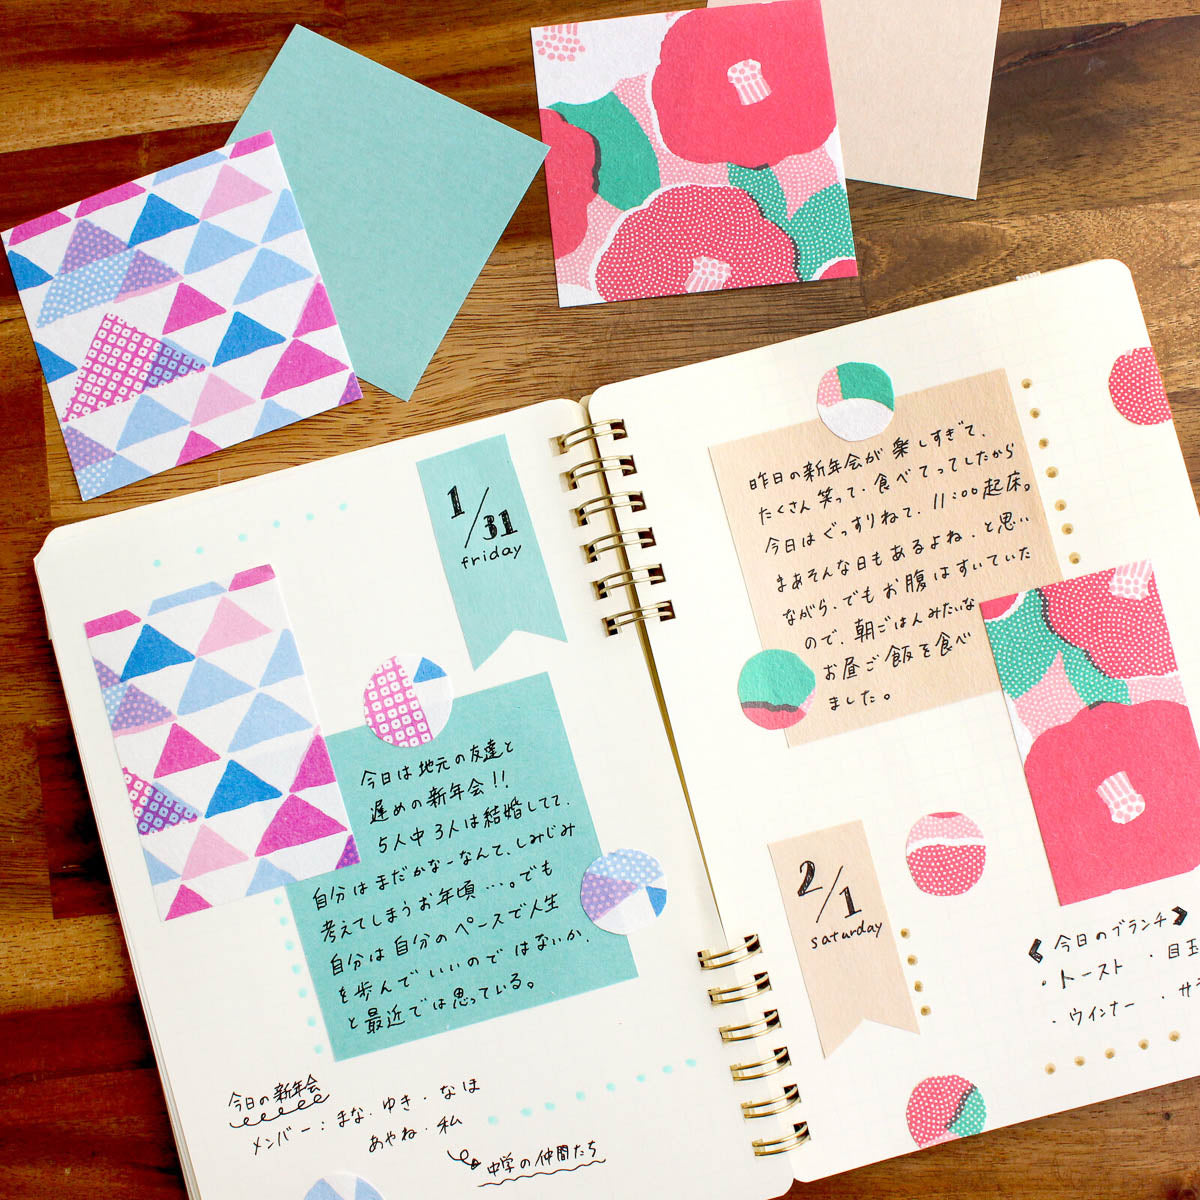 1/31
friday
今日は地元の友達と
遅めの新年会!!
5人中3人は結婚してて、
自分はまだかなーなんて、しみじみ
考えてしまうお年頃…。でも
自分は自分のペースで人生
を歩んでいいのではないか、
と最近では思っている。
今日の新年会
メンバー:まな・ゆき・なほ
あやね・私
中学の仲間たち
昨日の新年会が楽しすぎて、
たくさん笑って、食べてってしたから
今日はぐっすりねて、11:00起床。
まあそんな日もあるよね、と思い
ながら、でもお腹はすいていた
ので、朝ごはんみたいな
お昼ご飯を食べ
ました。
2/1
saturday
《今日のブランチ》
・トースト ・目玉
・ウインナー ・サラ